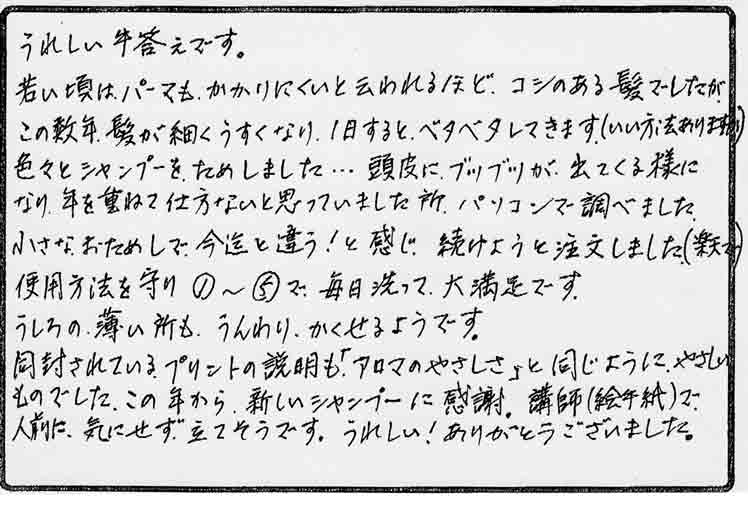 うれしい手答えです。
若い頃は、パーマも、かかりにくいと云われるほど、コシのある髪でしたが
この数年、髪が細くうすくなり、1日すると、ベタベタしてきます。(いい方法ありますか)
色々とシャンプーを、ためしました… 頭皮に、ブツブツが、出てくる様に
なり、年を重ねて仕方ないと思っていました所、パソコンで調べました、
小さな、おためしで、今迄と違う!と感じ、続けようと注文しました。(楽天で)
使用方法を守り ①～⑤で、毎日洗って、大満足です。
うしろの、薄い所も、うんわり、かくせるようです。
同封されている、プリントの説明も、「アロマのやさしさ」と同じように、やさしい
ものでした、この年から、新しいシャンプーに感謝。講師(絵手紙)で、
人前に、気にせず立てそうです。うれしい!ありがとうございました。